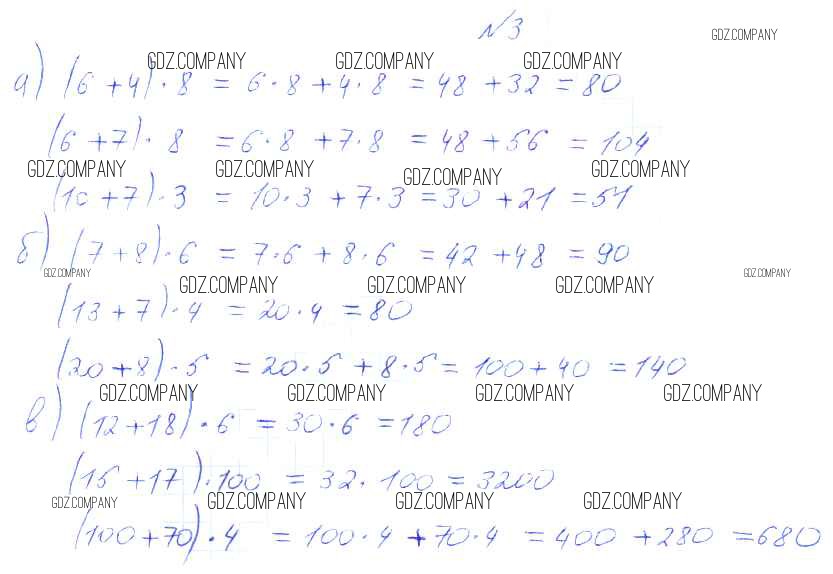 №3
GDZ.COMPANY
GDZ.COMPANY GDZ.COMPANY GDZ.COMPANY
а) (6 + 4) · 8 = 6 · 8 + 4 · 8 = 48 + 32 = 80
(6 + 7) · 8 = 6 · 8 + 7 · 8 = 48 + 56 = 104
GDZ.COMPANY GDZ.COMPANY GDZ.COMPANY GDZ.COMPANY
(10 + 7) · 3 = 10 · 3 + 7 · 3 = 30 + 21 = 51
б) (7 + 8) · 6 = 7 · 6 + 8 · 6 = 42 + 48 = 90
GDZ.COMPANY GDZ.COMPANY GDZ.COMPANY GDZ.COMPANY GDZ.COMPANY
(13 + 7) · 4 = 20 · 4 = 80
(20 + 8) · 5 = 20 · 5 + 8 · 5 = 100 + 40 = 140
GDZ.COMPANY GDZ.COMPANY GDZ.COMPANY GDZ.COMPANY
в) (12 + 18) · 6 = 30 · 6 = 180
(15 + 17) · 100 = 32 · 100 = 3200
GDZ.COMPANY GDZ.COMPANY GDZ.COMPANY GDZ.COMPANY
(100 + 70) · 4 = 100 · 4 + 70 · 4 = 400 + 280 = 680